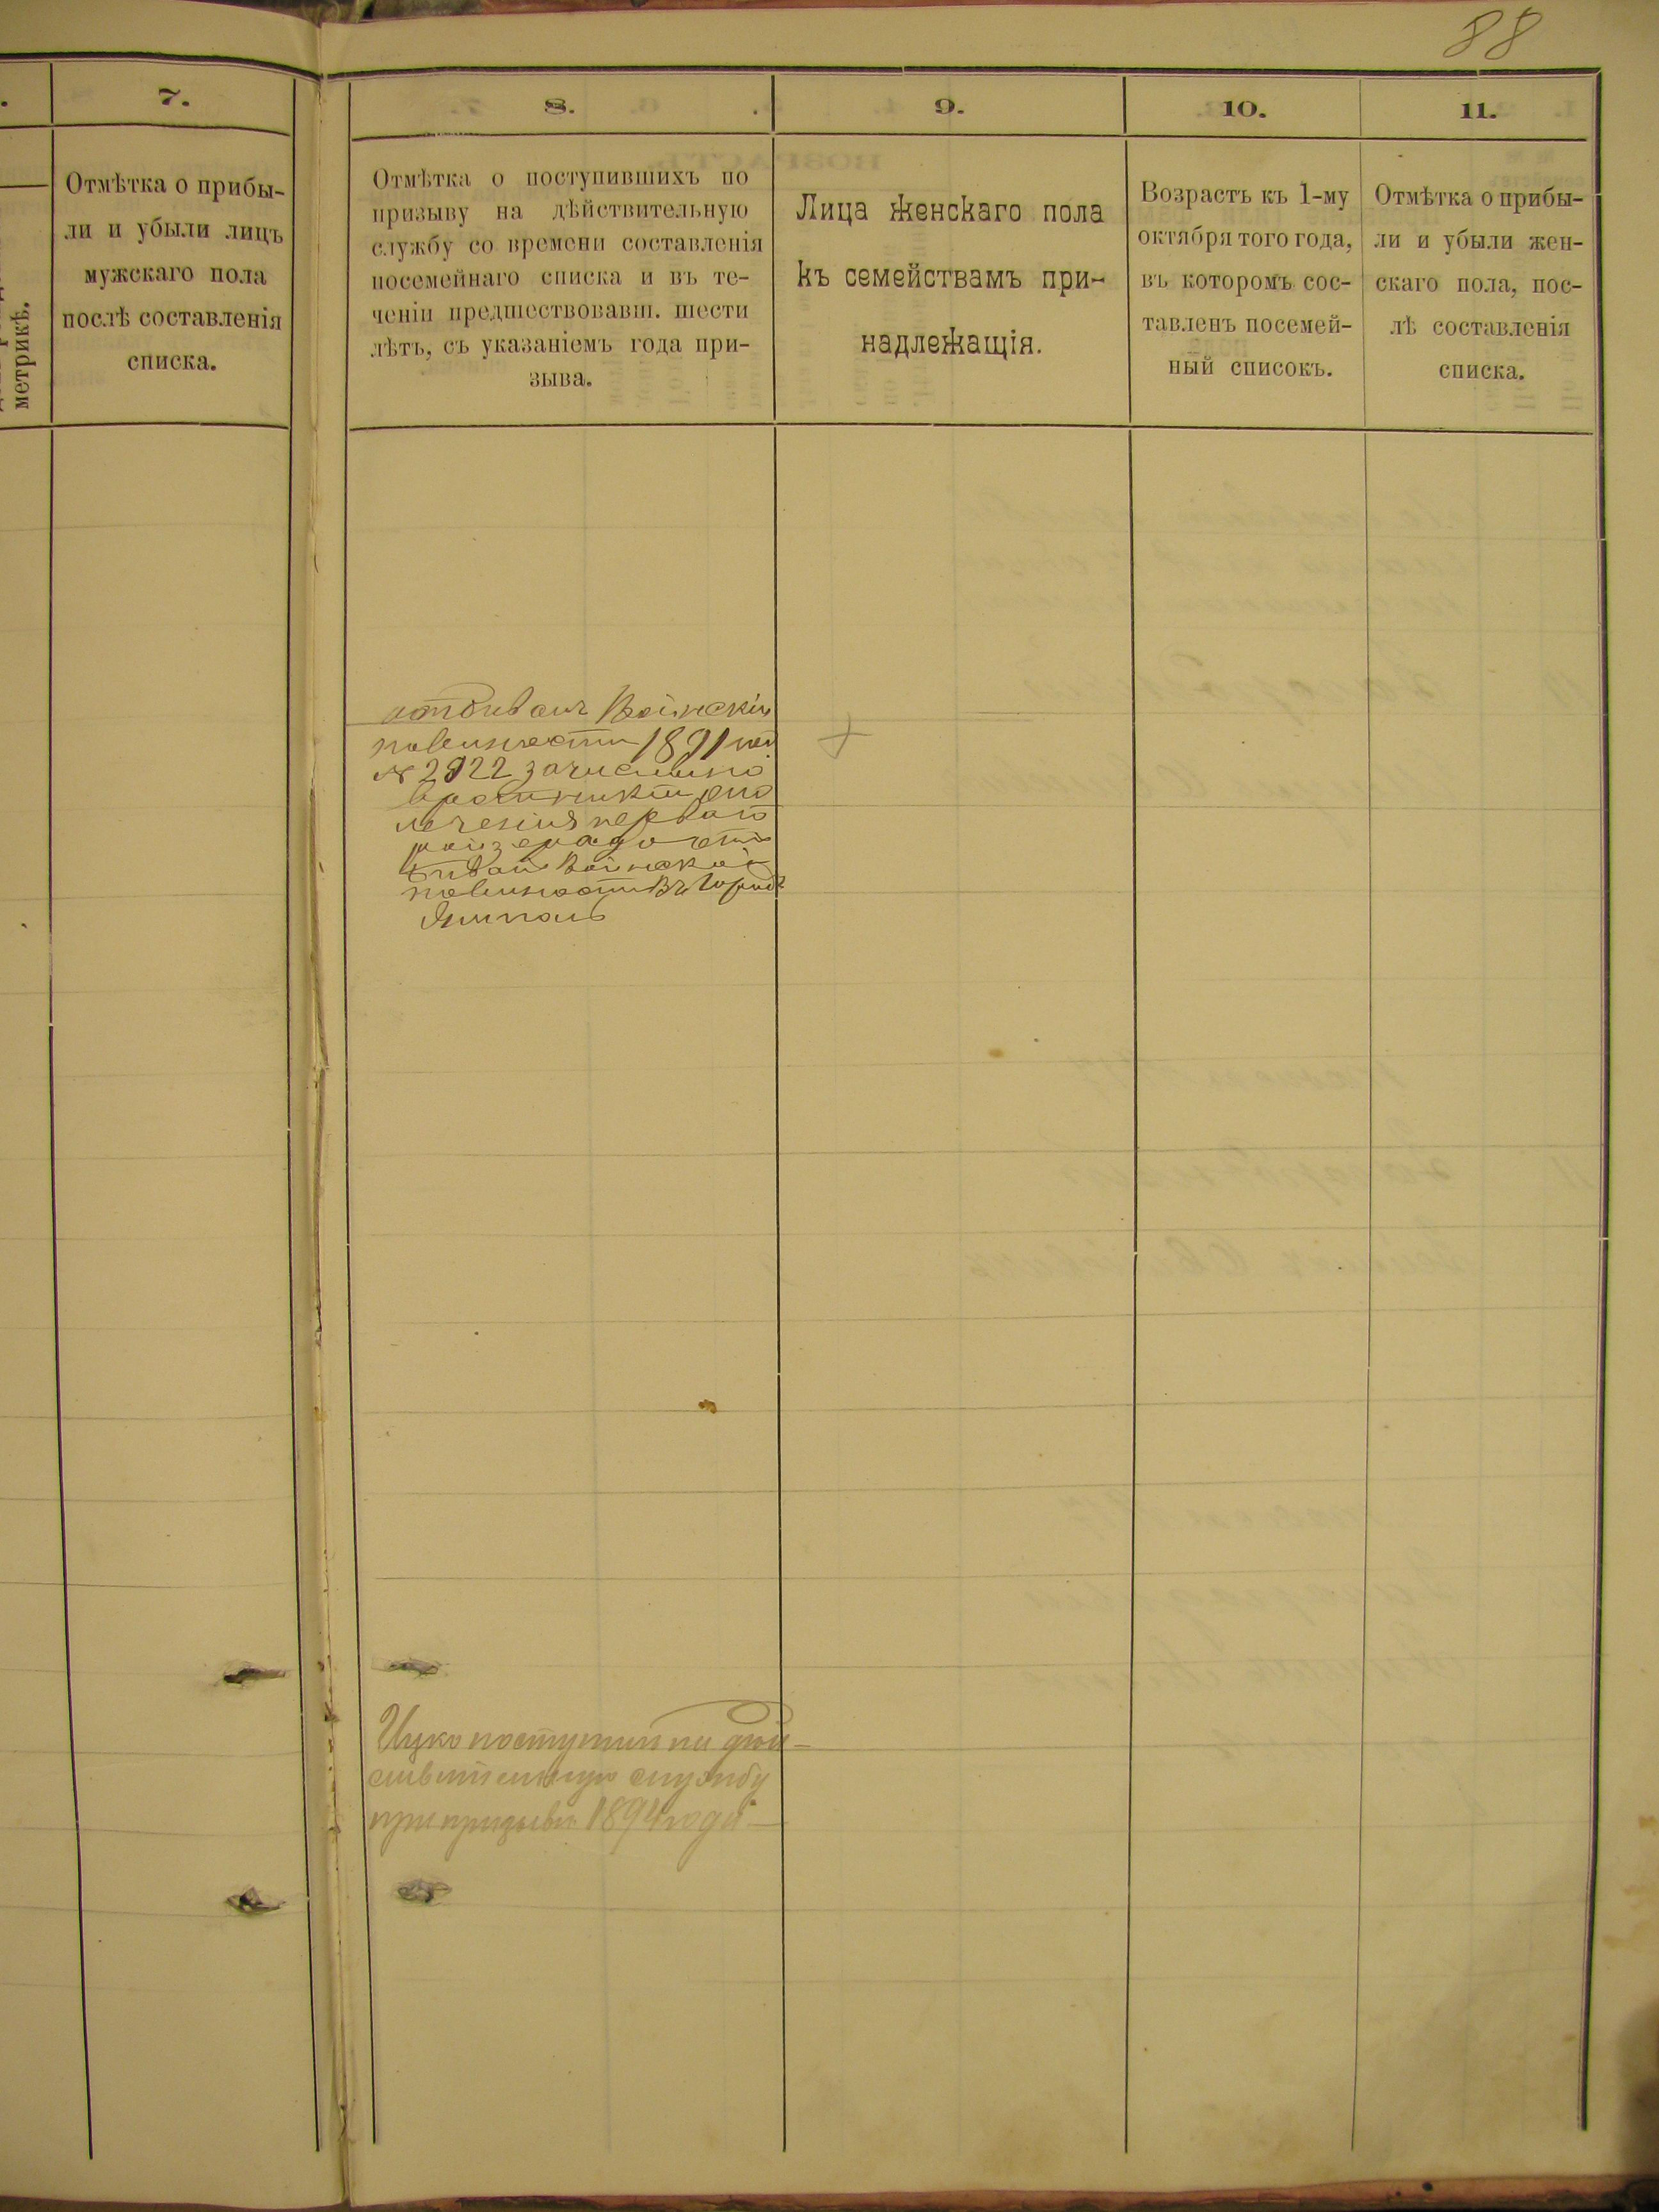 88
7.
8.
9.
10.
11.
метрикѣ.
Отмѣтка о прибы-
ли и убыли лицъ
мужскаго пола
послѣ составленія
списка.
Отмѣтка о поступившихъ по
призыву на дѣйствительную
службу со времени составленія
посемейнаго списка и въ те-
ченіи предшествовавш. шести
лѣтъ, съ указаніемъ года при-
зыва.
Лица женскаго пола
къ семействамъ при-
надлежащія.
Возрастъ къ 1-му
октября того года,
въ которомъ сос-
тавленъ посемей-
ный списокъ.
Отмѣтка о прибы-
ли и убыли жен-
скаго пола, пос-
лѣ составленія
списка.
отбивалъ Воинскію
повинности 1891
№ 2922
первого
розерада
Воинской
повинности Въ Городѣ
Ямполь
Ицко поступил на дѣй-
ствительную службу
при призывѣ 1894 года